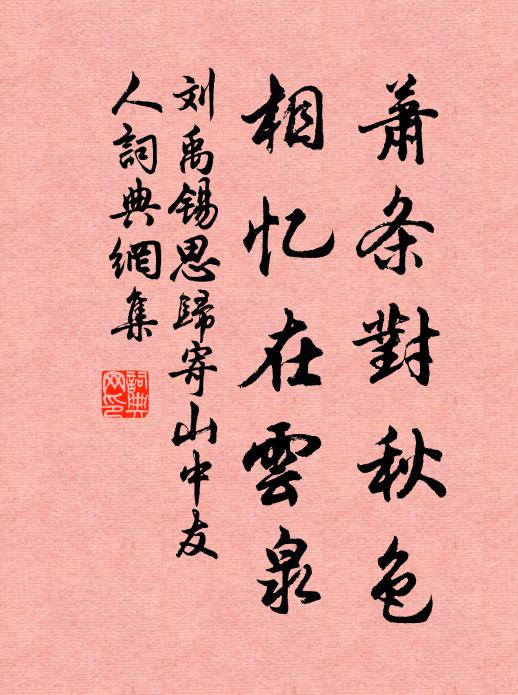 萧条對秋色
相忆在雲泉
刘禹锡思歸寄山中友
人詞典網集
詞典
网印